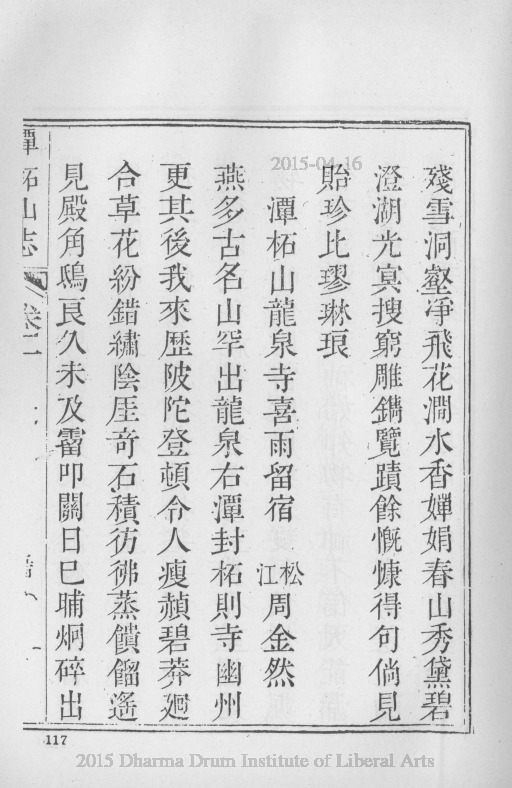 2015-04-16
殘雪洞壑淨飛花澗水香嬋娟春山秀黛碧
澄湖光冥搜窮雕鐫覽蹟餘慨慷得句倘見
貽珍比璆琳琅
潭柘山龍泉寺喜雨留宿 松江周金然
燕多古名山罕出龍泉右潭封柘則寺幽州
更其後我來歷陂陀登頓令人瘦顛碧莽廻
合草花紛錯繡陰厓奇石積彷彿蒸饙餾遙
見殿角鴟良久未及霤叩關日巳晡炯碎出
潭柘山志 卷二
117
2015 Dharma Drum Institute of Liberal Arts